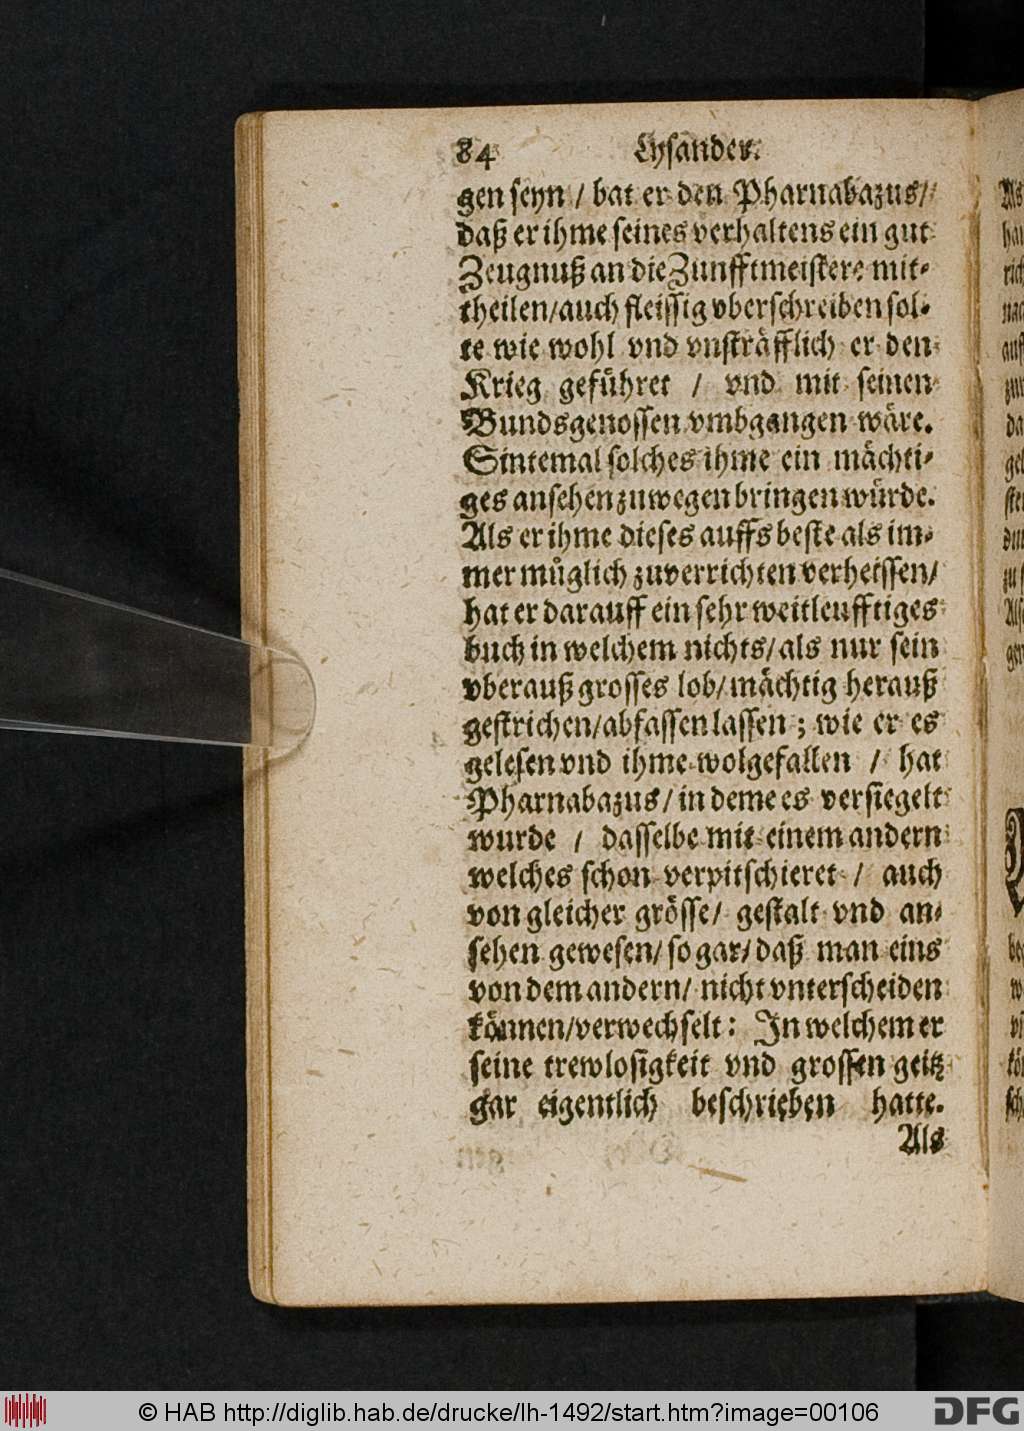 84 Lysander.
gen seyn / bat er den Pharnabazus /
daß er ihme seines verhaltens ein gut
Zeugnuß an die Zunfftmeistere mit-
theilen/auch fleissig vberschreiben sol-
te wie wohl vnd vnsträfflich er den
Krieg geführet / vnd mit seinen
Bundsgenossen vmbgangen wäre.
Sintemal solches ihme ein mächti-
ges ansehen zuwegen bringen würde.
Als er ihme dieses auffs beste als im-
mer müglich zuverrichten verheissen/
hat er darauff ein sehr weitleufftiges
buch in welchem nichts/als nur sein
vberauß grosses lob/mächtig herauß
gestrichen/abfassen lassen ; wie er es
gelesen vnd ihme wolgefallen / hat
Pharnabazus/in deme es versiegelt
wurde / dasselbe mit einem andern
welches schon verpitschieret / auch
von gleicher grösse/ gestalt vnd an-
sehen gewesen/so gar/daß man eins
von dem andern/ nicht vnterscheiden
können/verwechselt: In welchem er
seine trewlosigkeit vnd grossen geitz
gar eigentlich beschrieben hatte.
Als
© HAB http://diglib.hab.de/drucke/lh-1492/start.htm?image=00106
DFG